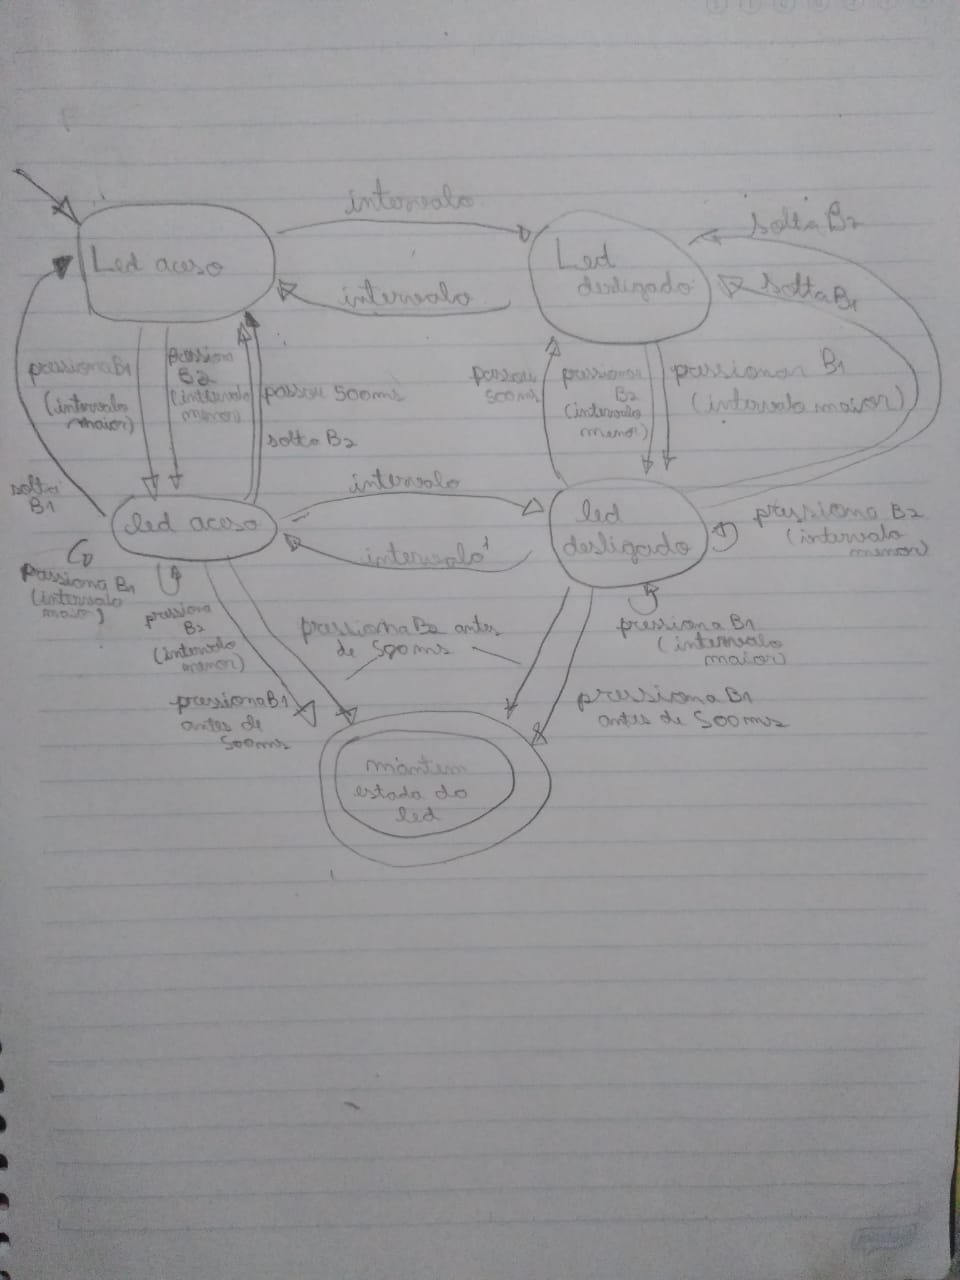 intervalo
solta B2
Led aceso
Led
desligado
intervalo
solta B1
pressiona B1
(intervalo
maior)
B2
(intervalo
menor)
passou 500ms
solta B2
passou
500ms
pressionar
B2
(intervalo
menor)
pressionar B1
(intervalo maior)
solta
B1
led aceso
intervalo
intervalo
led
desligado
pressiona B2
(intervalo
menor)
pressiona B1
(intervalo
maior)
pressiona
B2
(intervalo
menor)
pressiona B2 antes
de 500ms
pressiona B1
(intervalo
maior)
pressiona B1
antes de
500ms
pressiona B1
antes de 500ms
mantem
estado do
led